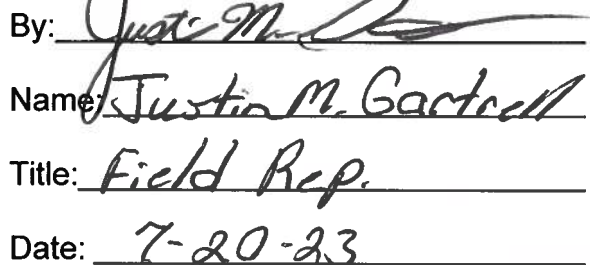 By: Justin M.
Name: Justin M. Gartrell
Title: Field Rep.
Date: 7-20-23